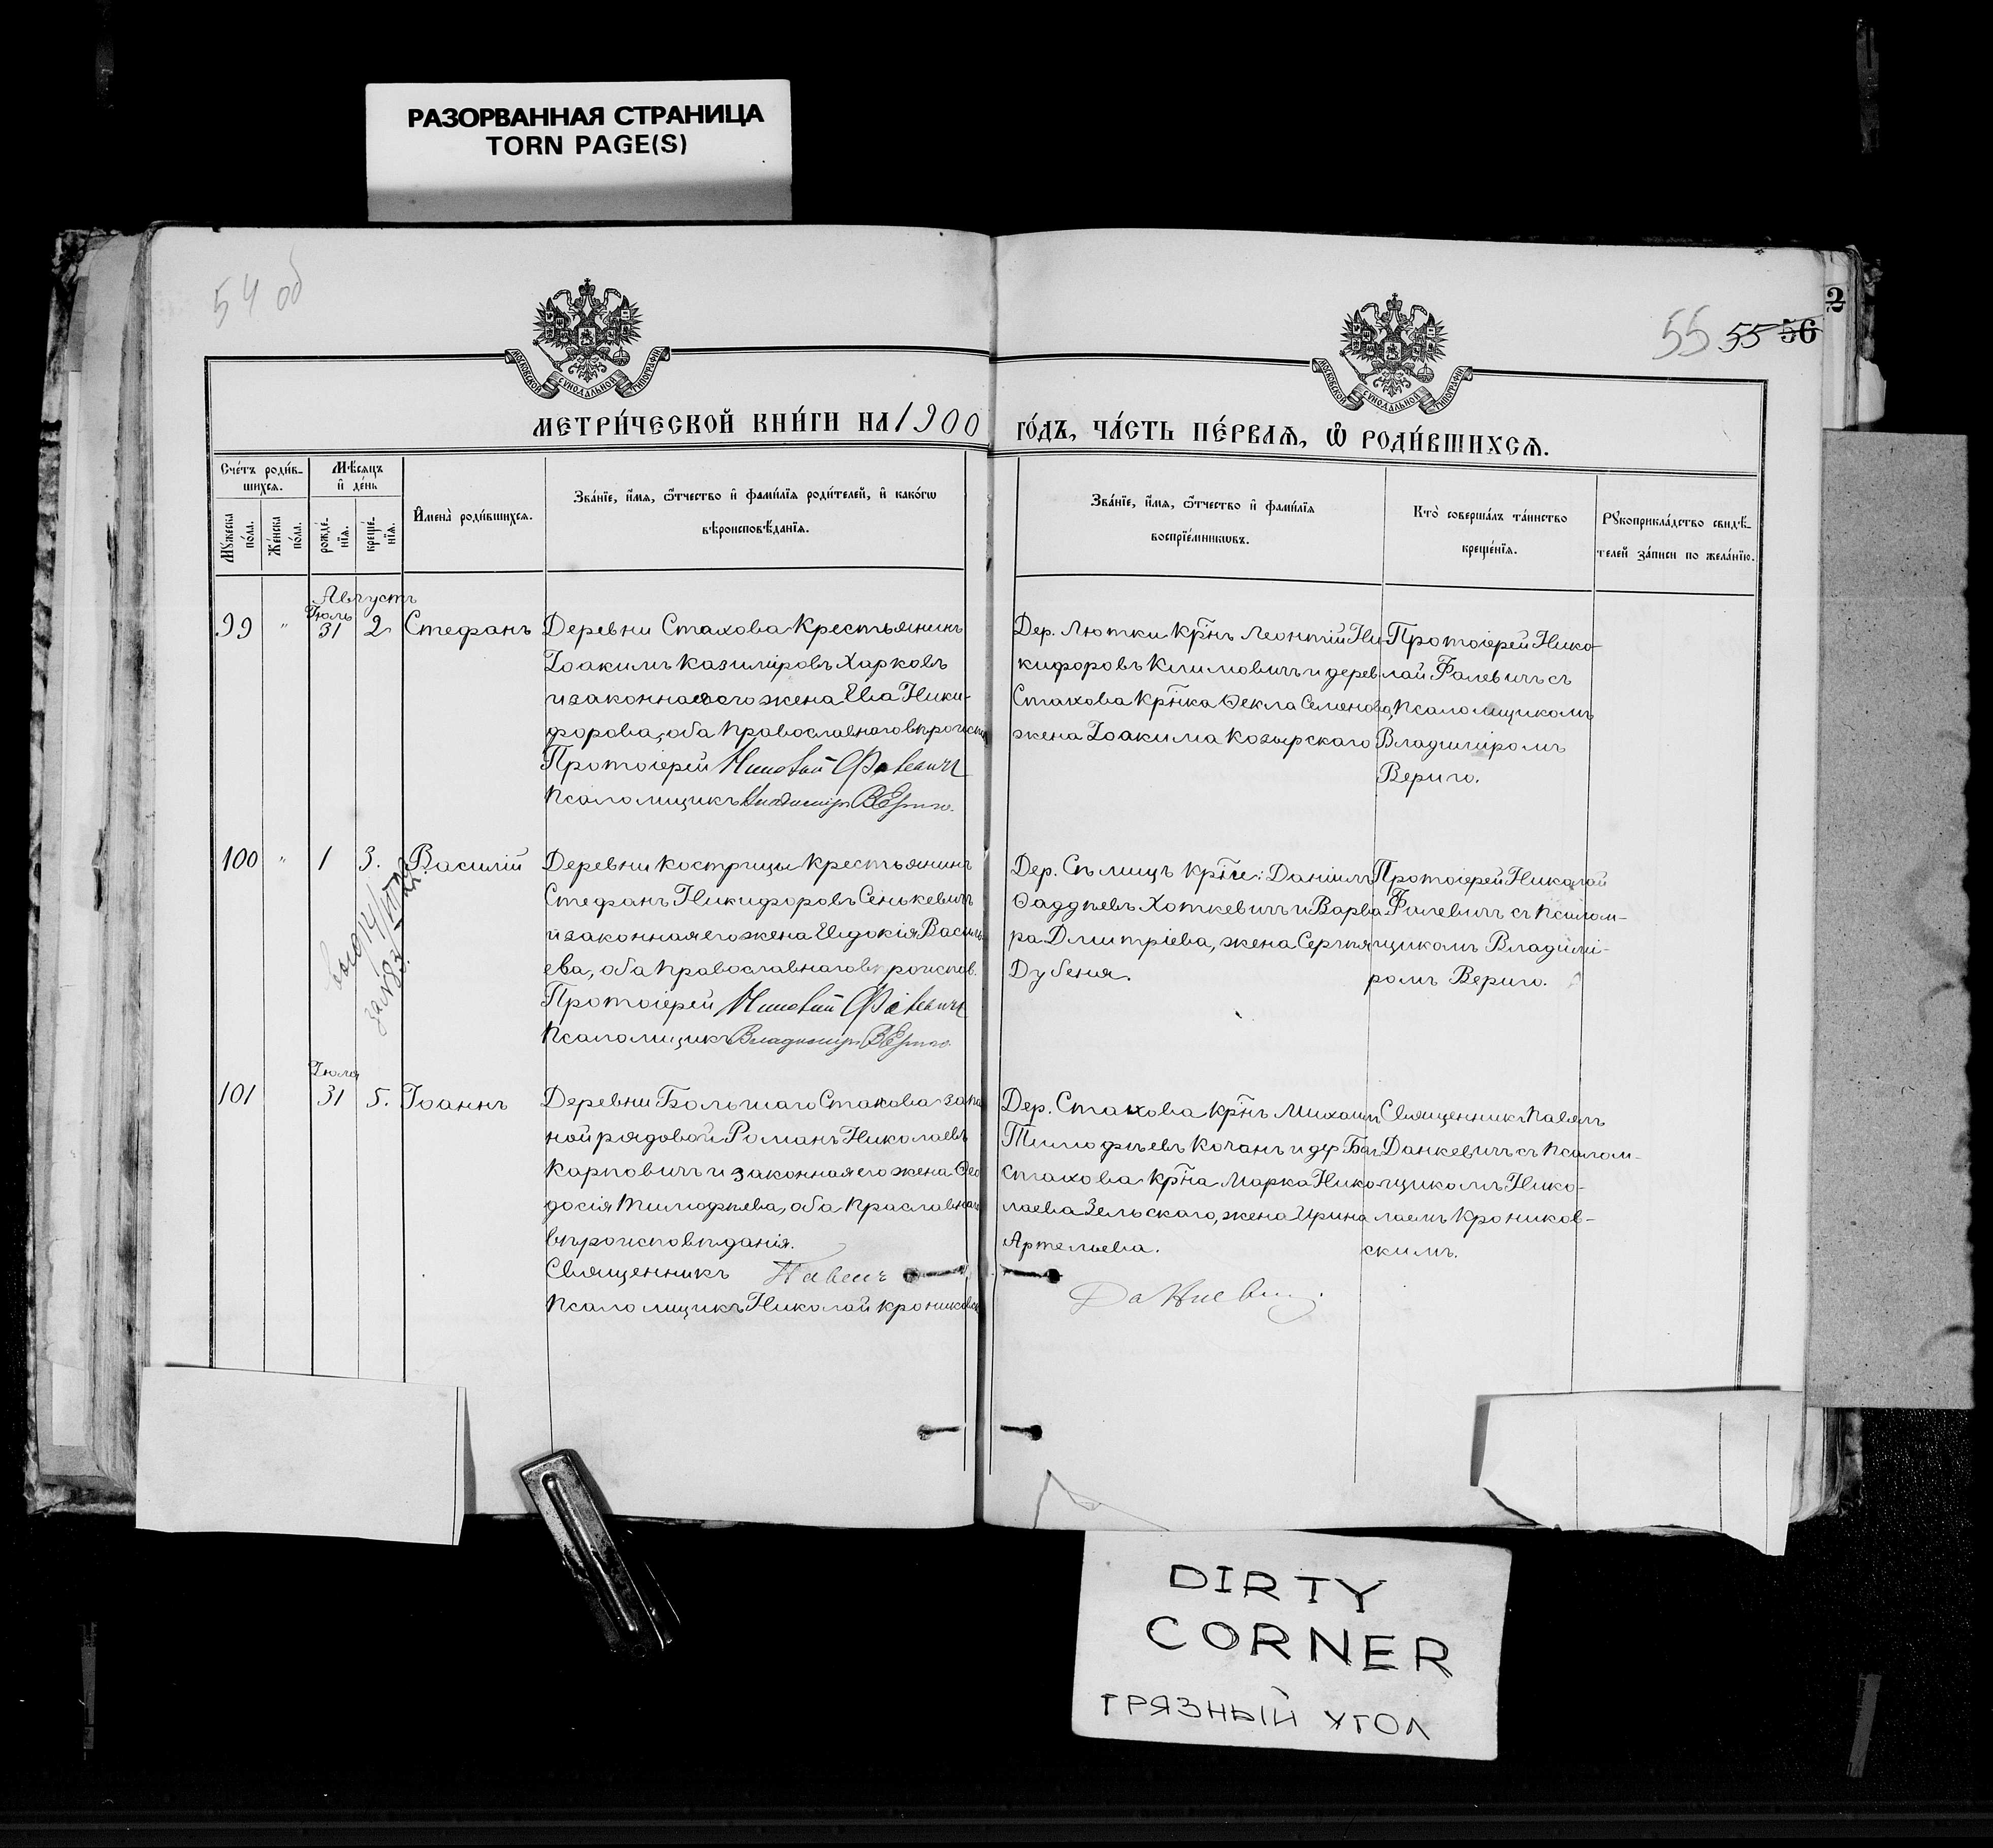 РАЗОРВАННАЯ СТРАНИЦА
TORN PAGE(S)
54 об
55 55 56
2
МОСКОВСКОЙ СѴНОДАЛЬНОЙ ТИПОГРАФІИ
МОСКОВСКОЙ СѴНОДАЛЬНОЙ ТИПОГРАФІИ
МЕТРИ́ЧЕСКОЙ КНИ́ГИ НА 1900
ГО́ДЪ, ЧА́СТЬ ПЕ́РВАЯ, Ѽ РОДИ́ВШИХСЯ.
Сче́тъ роди́вшихся.
Мꙋ́жеска по́ла.
Же́нска по́ла.
Мѣ́сяцъ и҆ де́нь
рожде́нїя.
креще́нїя.
И҆мена̀ роди́вшихся.
Зва́нїе, и҆́мя, ѻ҆́тчество и҆ фами́лїя роди́телей, и҆ како́гѡ
вѣроисповѣ́данїя.
Зва́нїе, и҆́мя, ѻ҆́тчество и҆ фами́лїя
воспрїе́мникѡвъ.
Кто̀ соверша́лъ та́инство
креще́нїя.
Рꙋкоприкла́дство свидѣ́-
телей за́писи по жела́нїю.
Августъ
99 " Іюль 31 2 Стефанъ
Деревни Стахова крестьянинъ
Іоакимъ Казиміровъ Харковъ
и законная его жена Ева Ники-
форова, оба православнаго вѣроиспов
Протоіерей Николай Фалевичъ
Псаломщикъ Владиміръ Вериго.
Дер. Лютки кр̃нъ Леонтій Ни-
кифоровъ Климовичъ и дерев
Стахова кр̃нка Ѳекла Семенова,
жена Іоакима Козырскаго
Протоіерей Нико-
лай Фалевичъ съ
псаломщикомъ
Владиміромъ
Вериго.
100 " 1 3. Василій
за №83.
Деревни Кострицы крестьянинъ
Стефанъ Никифоровъ Сенькевичъ
и законная его жена Евдокія Василь
ева, оба православнаго вѣроиспов.
Протоіерей Николай Фалевичъ
Псаломщикъ Владиміръ Вериго
Дер. Сѣлищъ кр̃не: Даніилъ
Ѳаддѣевъ Хоткевичъ и Варва
ра Дмитріева, жена Сергѣя
Дубеня.
Протоіерей Николай
Фалевичъ съ псалом-
щикомъ Владимі-
ромъ Вериго.
Іюля
101 31 5. Іоаннъ
Деревни Большаго Стахова запа
ной рядовой Романъ Николаевъ
Карповичъ и законная его жена Ѳео
досія Тимофѣева, оба праславнаго
вѣроисповѣданія.
Священникъ Павелъ
Псаломщикъ Николай Крониковск
Дер. Стахова кр̃нъ Михаилъ
Тимофѣевъ Кочанъ и дер Бол
Стахова кр̃на Марка Нико
лаева Зельскаго, жена Ирина
Артемьева.
Данкевичъ.
Священникъ Павелъ
Данкевичъ съ псалом-
щикомъ Нико-
лаемъ Кроников-
скимъ.
DIRTY
CORNER
ГРЯЗНЫЙ УГОЛ